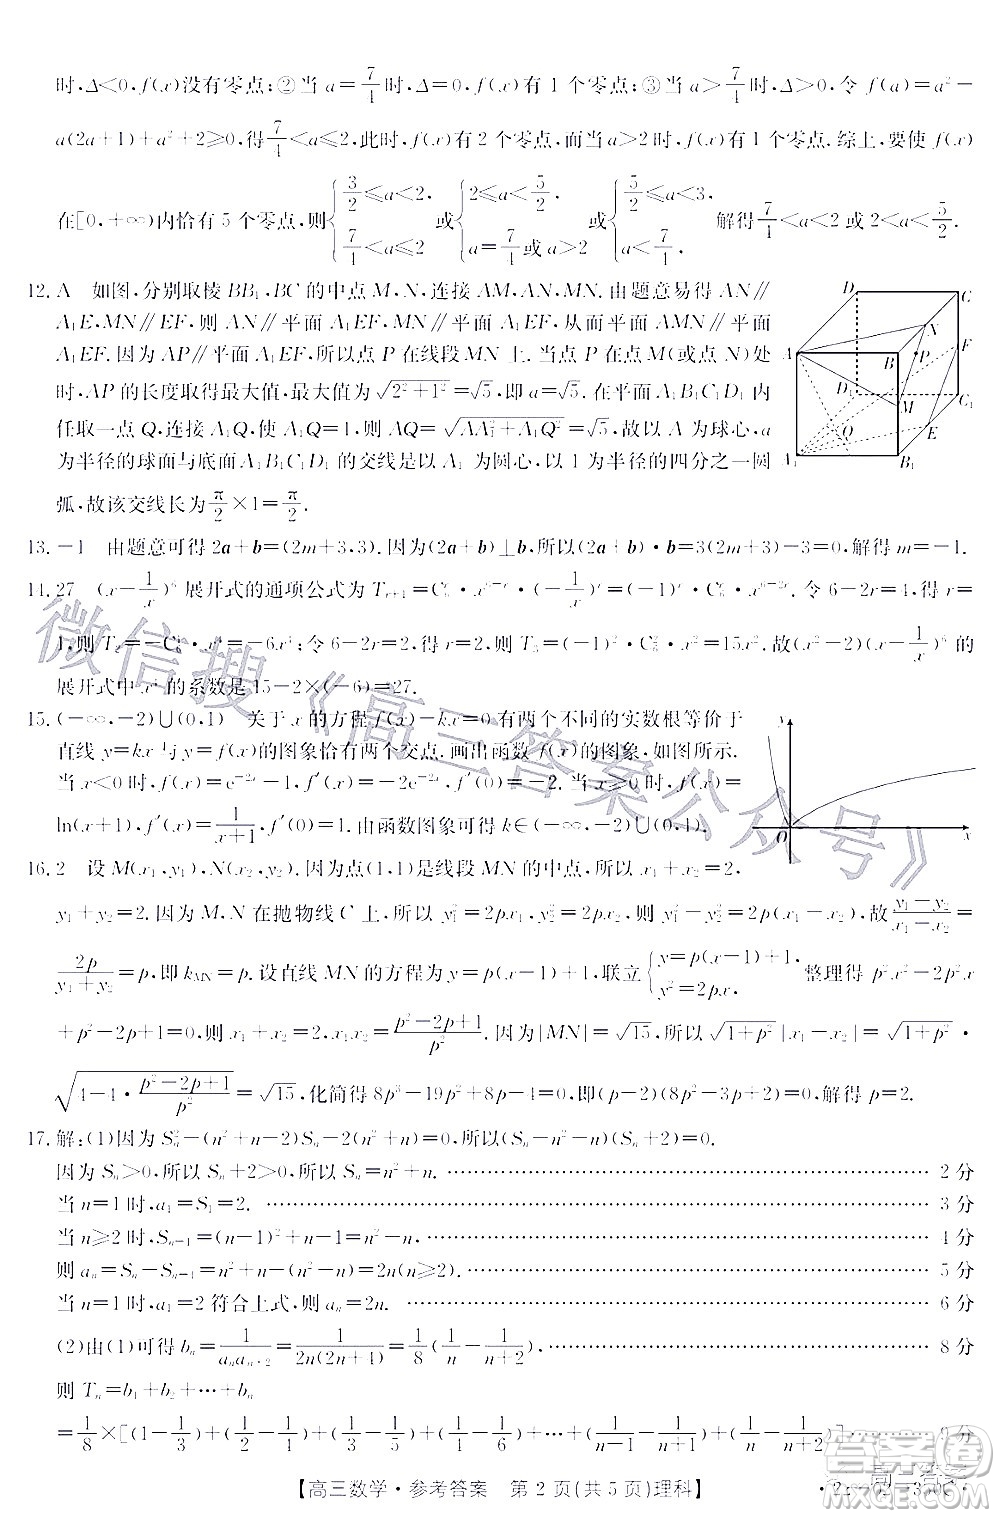 时,Δ<0,f(x)没有零点;②当 a=7/4 时,Δ=0,f(x)有 1 个零点;③当 a>7/4 时,Δ>0,令 f(a)=a²-
a(2a+1)+a²+2≥0,得 7/4<a≤2,此时,f(x)有 2 个零点,所以当 a>2 时,f(x)有 1 个零点.综上,要使 f(x)
在[0,+∞)内恰有 5 个零点,则{3/2≤a<2, 7/4<a≤2 或{2≤a<5/2, a=7/4 或 a>2 或{5/2≤a<3, 7/4<a≤2, 解得 7/4<a<2 或 2<a<5/2.
12. A 如图,分别取棱 BB₁,BC 的中点 M,N,连接 AM,AN,MN.由题意易得 AN∥
A₁E,MN∥EF,则 AN∥平面 A₁EF,MN∥平面 A₁EF,从而平面 AMN∥平面
A₁EF.因为 AP∥平面 A₁EF,所以点 P 在线段 MN 上.当点 P 与点 M(或点 N)处
时,AP 的长度取得最大值,最大值为√(2²+1²)=√5,即 a=√5.在平面 A₁B₁C₁D₁ 内
任取一点 Q,连接 A₁Q,使 A₁Q=1,则 AQ=√(AA₁²+A₁Q²)=√5,故以 A 为球心,a
为半径的球面与底面 A₁B₁C₁D₁ 的交线是以 A₁ 为圆心,以 1 为半径的四分之一圆
弧,故该交线长为 π/2×1=π/2.
D C N F A B P D₁ M C₁ Q E A₁ B₁
13. -1 由题意可得 2a+b=(2m+3,3).因为(2a+b)⊥b,所以(2a+b)·b=3(2m+3)-3=0,解得 m=-1.
14. 27 (x-1/x)⁶ 展开式的通项公式为 Tᵣ₊₁=C₆ʳ·x⁶⁻ʳ·(-1/x)ʳ=(-1)ʳ·C₆ʳ·x⁶⁻²ʳ.令 6-2r=4,得 r=
1,则 T₂=-C₆¹·x⁴=-6x⁴;令 6-2r=2,得 r=2,则 T₃=(-1)²·C₆²·x²=15x².故(x²-2)(x-1/x)⁶ 的
展开式中 x⁴ 的系数是 15-2×(-6)=27.
15. (-∞,-2)∪(0,1) 关于 x 的方程 f(x)-kx=0 有两个不同的实数根等价于
直线 y=kx 与 y=f(x)的图象恰有两个交点.画出函数 f(x)的图象,如图所示.
当 x<0 时,f(x)=e⁻²ˣ-1,f′(x)=-2e⁻²ˣ<-2.当 x≥0 时,f(x)=
ln(x+1),f′(x)=1/(x+1),f′(0)=1.由函数图象可得 k∈(-∞,-2)∪(0,1).
y O x
16. 2 设 M(x₁,y₁),N(x₂,y₂).因为点(1,1)是线段 MN 的中点,所以 x₁+x₂=2,
y₁+y₂=2.因为 M,N 在抛物线 C 上,所以 y₁²=2px₁,y₂²=2px₂,则 y₁²-y₂²=2p(x₁-x₂),故(y₁-y₂)/(x₁-x₂)=
2p/(y₁+y₂)=p,即 kMN=p.设直线 MN 的方程为 y=p(x-1)+1,联立{y=p(x-1)+1, y²=2px, 整理得 p²x²-2p²x
+p²-2p+1=0,则 x₁+x₂=2,x₁x₂=(p²-2p+1)/p².因为|MN|=√15,所以√(1+p²)|x₁-x₂|=√(1+p²)·
√(4-4·(p²-2p+1)/p²)=√15,化简得 8p³-19p²+8p-4=0,即(p-2)(8p²-3p+2)=0,解得 p=2.
17. 解:(1)因为 Sₙ²-(n²+n-2)Sₙ-2(n²+n)=0,所以(Sₙ+2)[Sₙ-(n²+n)]=0.
因为 Sₙ>0,所以 Sₙ+2>0,所以 Sₙ=n²+n. …… 2 分
当 n=1 时,a₁=S₁=2. …… 3 分
当 n≥2 时,Sₙ₋₁=(n-1)²+n-1=n²-n, …… 4 分
则 aₙ=Sₙ-Sₙ₋₁=n²+n-(n²-n)=2n(n≥2). …… 5 分
当 n=1 时,a₁=2 符合上式,则 aₙ=2n. …… 6 分
(2)由(1)可得 bₙ=1/(aₙaₙ₊₂)=1/(2n(2n+4))=1/8(1/n-1/(n+2)), …… 8 分
则 Tₙ=b₁+b₂+…+bₙ
=1/8×[(1-1/3)+(1/2-1/4)+(1/3-1/5)+…+(1/(n-1)-1/(n+1))+(1/n-1/(n+2))] …… 9 分
【高三数学·参考答案 第 2 页(共 5 页)理科】
微信搜《高三答案公众号》
答案圈